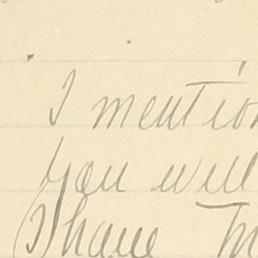 I mention
you will
I have M